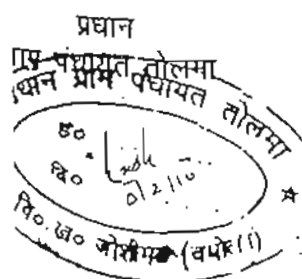 प्रधान
ग्राम पंचायत तोलमा
प्रधान ग्राम पंचायत तोलमा
ह०
दि०
वि० ख० जोशीमठ (चमोली)